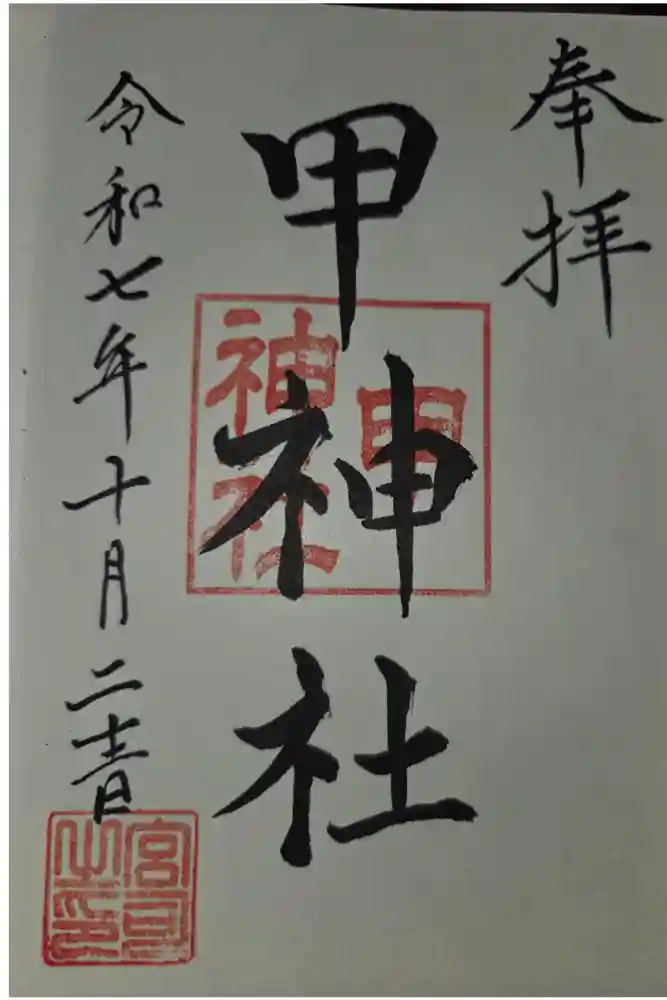 奉拝
甲神社
令和七年十月二十日
甲
神社
宮司
之印